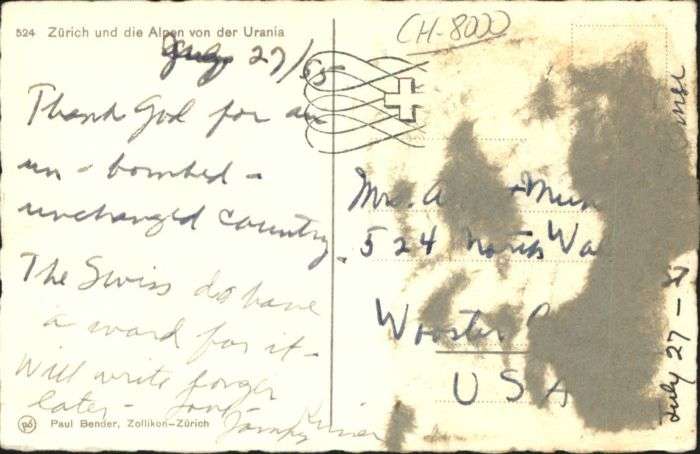 524 Zürich und die Alpen von der Urania
July 27/55
Thank God for an
un-bombed-
unchanged country.
The Swiss do have
a word for it-
Will write longer
later- Love
Paul Bender, Zollikon-Zürich
(CH-8000)
Mrs.
524 North Wa
Wooster
USA
July 27-